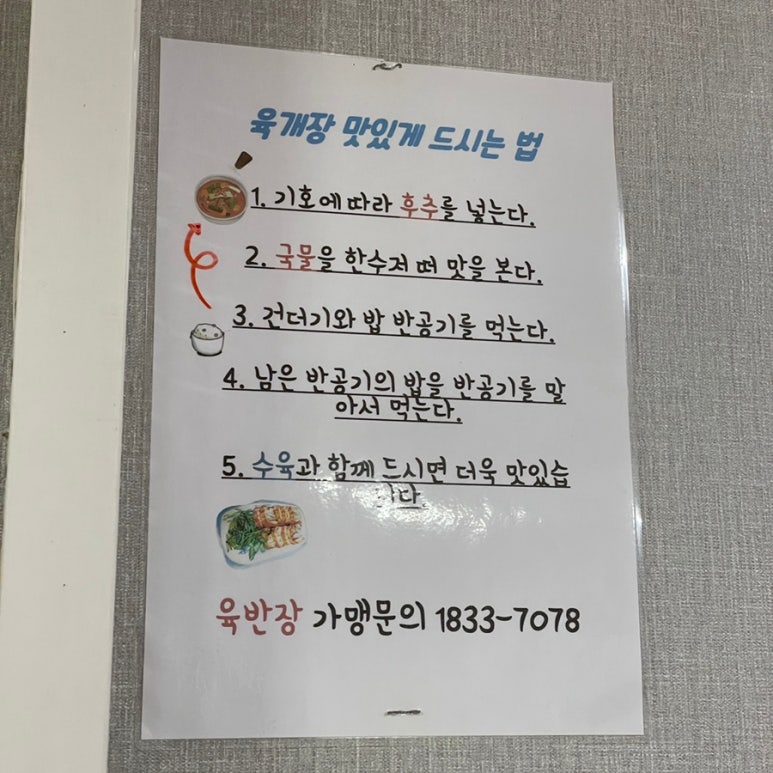 육개장 맛있게 드시는 법
1. 기호에 따라 후추를 넣는다.
2. 국물을 한수저 떠 맛을 본다.
3. 건더기와 밥 반공기를 먹는다.
4. 남은 반공기의 밥을 반공기를 말
아서 먹는다.
5. 수육과 함께 드시면 더욱 맛있습
니다.
육반장 가맹문의 1833-7078